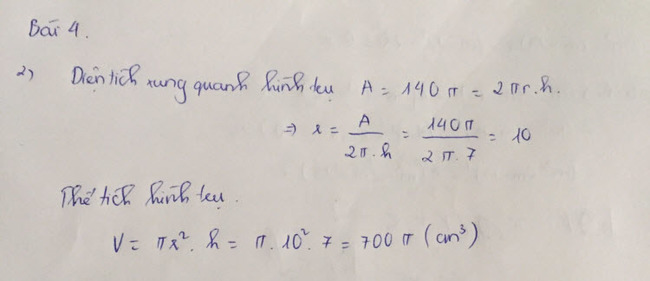 Bài 4.
2) Diện tích xung quanh hình trụ A = 140π = 2πr.h.
⇒ r = A / 2π.h = 140π / 2π.7 = 10
Thể tích hình trụ.
V = πr². h = π. 10². 7 = 700π (cm³)